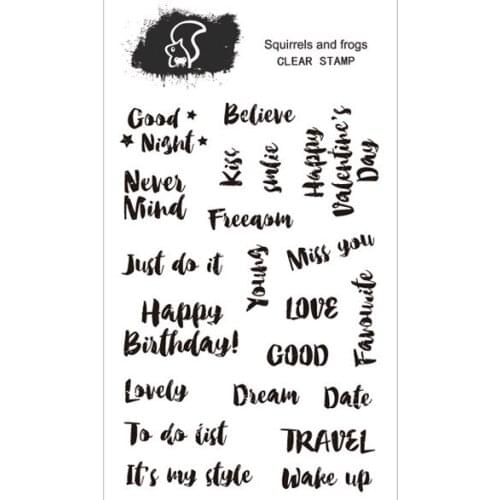 Squirrels and frogs
CLEAR STAMP
Good
Night
Believe
Kiss
smlie
Happy
Valentine's
Day
Never
Mind
Freeaom
Just do it
Young
Miss you
Happy
Birthday!
LOVE
Favourite
GOOD
Lovely
Dream
Date
To do list
TRAVEL
It's my style
Wake up